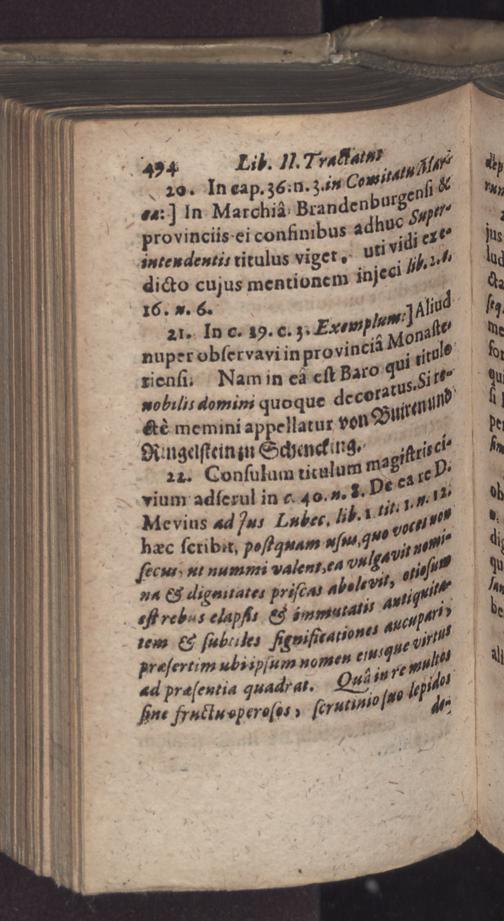 494 Lib. II. Tractatus
20. In cap. 36. n. 3. in Comitatu Mar-
ca:] In Marchiâ Brandenburgensi &
provinciis ei confinibus adhuc Super-
intendentis titulus viget, uti vidi ex e-
dicto cujus mentionem injeci lib. 2. c.
16. n. 6.
21. In c. 39. c. 3. Exemplum:] Aliud
nuper observavi in provinciâ Monaste-
riensi. Nam in eâ est Baro qui titulo
nobilis domini quoque decoratus. Si re-
ctè memini appellatur von Buiren und
Ringelstein zu Schencking.
22. Consulum titulum magistris ci-
vium adserui in c. 40. n. 8. De ea re D.
Mevius ad Jus Lubec. lib. 1. tit. 1. n. 12.
hæc scribit, postquam usus, quo voces non
secus, ut nummi valent, ea vulgavit nomi-
na & dignitates priscas abolevit, otiosum
est rebus elapsis & immutatis antiquita-
tem & subtiles significationes aucupari,
præsertim ubi ipsum nomen ejusque virtus
ad præsentia quadrat. Quâ in re multos
sine fructu operosos, scrutinio suo lepidos
de-
jus
lud
me
for
qui
si
per
ob
n.
dig
qu
be
ali